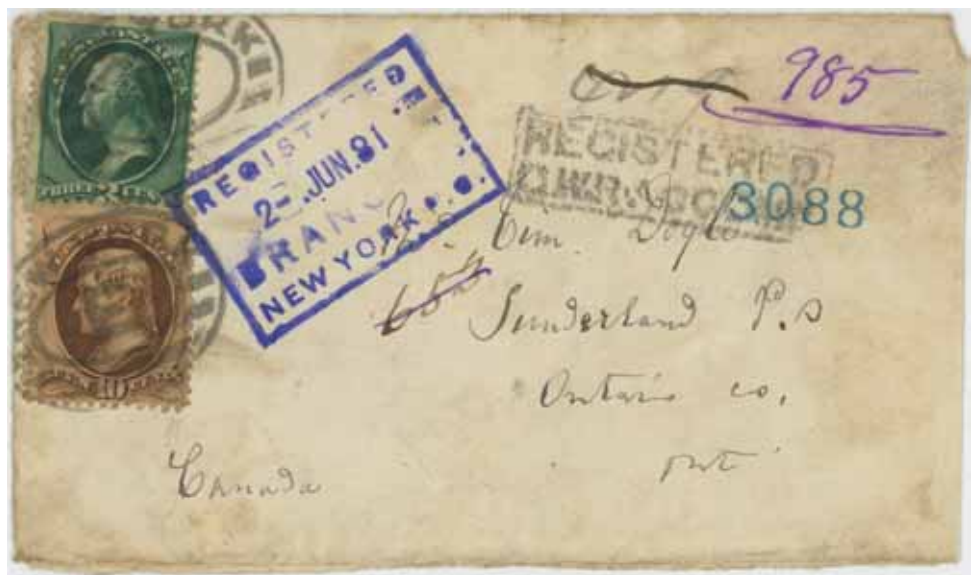 THREE CENTS
10
YORK
REGISTERED
2-.JUN.81
BRANC
NEW YORK P.O.
985
REGISTERED
3088
Sunderland P.O
Ontario Co,
Ont
Canada